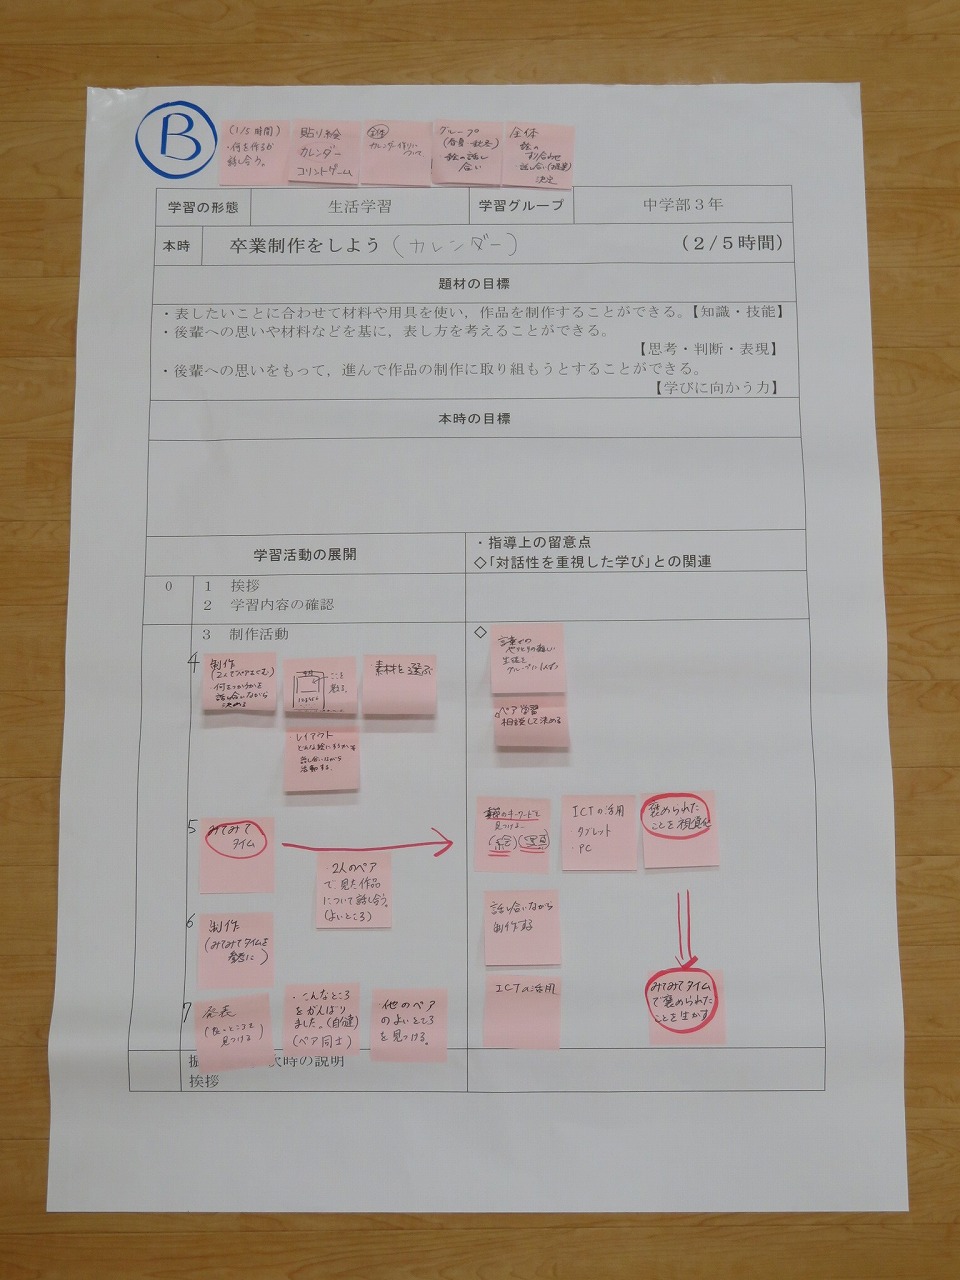 B
(1/5時間)
・何を作るか
話し合う。
貼り絵
カレンダー
コリントゲーム
全体
カレンダー作りに
ついて
グループ
(春夏・秋冬)
絵の話し
合い
全体
絵の
すり合わせ
・話し合い
決定
学習の形態
生活学習
学習グループ
中学部3年
本時
卒業制作をしよう(カレンダー)
(2/5時間)
題材の目標
・表したいことに合わせて材料や用具を使い,作品を制作することができる。【知識・技能】
・後輩への思いや材料などを基に,表し方を考えることができる。
【思考・判断・表現】
・後輩への思いをもって,進んで作品の制作に取り組もうとすることができる。
【学びに向かう力】
本時の目標
学習活動の展開
・指導上の留意点
◇「対話性を重視した学び」との関連
0
1 挨拶
2 学習内容の確認
3 制作活動
◇
4
制作
(2人でペアですむ)
・何をつかうかを
話し合いながら
決める
ここを
考える。
素材を選ぶ
・レイアウト
どんな絵にするかを
話し合いながら
活動する。
言葉での
やりとりの難しい
生徒を
グループに1人ずつ
ペア学習
相談して決める
5
みてみて
タイム
・2人のペア
で、見た作品
について話し合う。
(よいところ)
キーワードを
見つける
(絵)(写真)
ICTの活用
・タブレット
・PC
褒められた
ことを視覚化
6
制作
(みてみてタイムを
参考に)
話し合いながら
制作する
7
発表
(良いところを
見つける)
・こんなところ
をがんばり
ました。(自分達)
(ペア同士)
・他のペア
のよいところ
を見つける。
ICTの活用
みてみてタイム
で褒められた
ことを生かす
次時の説明
挨拶